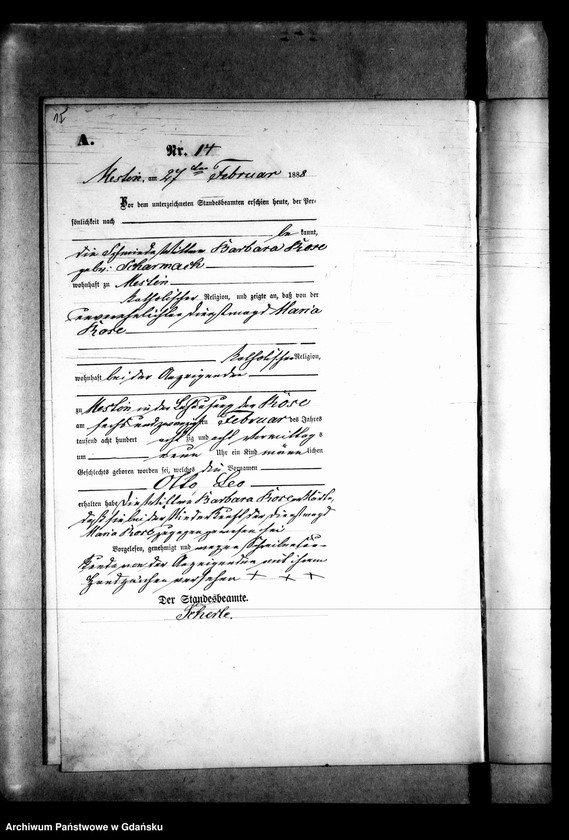 15
A.
Nr. 14
Mestin, am 27ten Februar 1888
Vor dem unterzeichneten Standesbeamten erschien heute, der Per-
sönlichkeit nach
be kannt,
die Schmiedewittwe Barbara Rose
geb: Scharmach
wohnhaft zu Mestin
katholischer Religion, und zeigte an, daß von der
unverehelichten Dienstmagd Maria
Rose
katholischer Religion,
wohnhaft bei der Anzeigenden
zu Mestin in der Behausung der Rose
am sechsundzwanzigsten Februar des Jahres
tausend acht hundert achtzig und acht Vormittags
um neun Uhr ein Kind männlichen
Geschlechts geboren worden sei, welches die Vornamen
Otto Leo
erhalten habe. Die Wittwe Barbara Rose erklärte,
daß sie bei der Niederkunft der Dienstmagd
Maria Rose zugegen gewesen sei
Vorgelesen, genehmigt und wegen Schreibensun-
kunde von der Anzeigenden mit ihrem
Handzeichen versehen + + +
Der Standesbeamte.
Scherle.
Archiwum Państwowe w Gdańsku